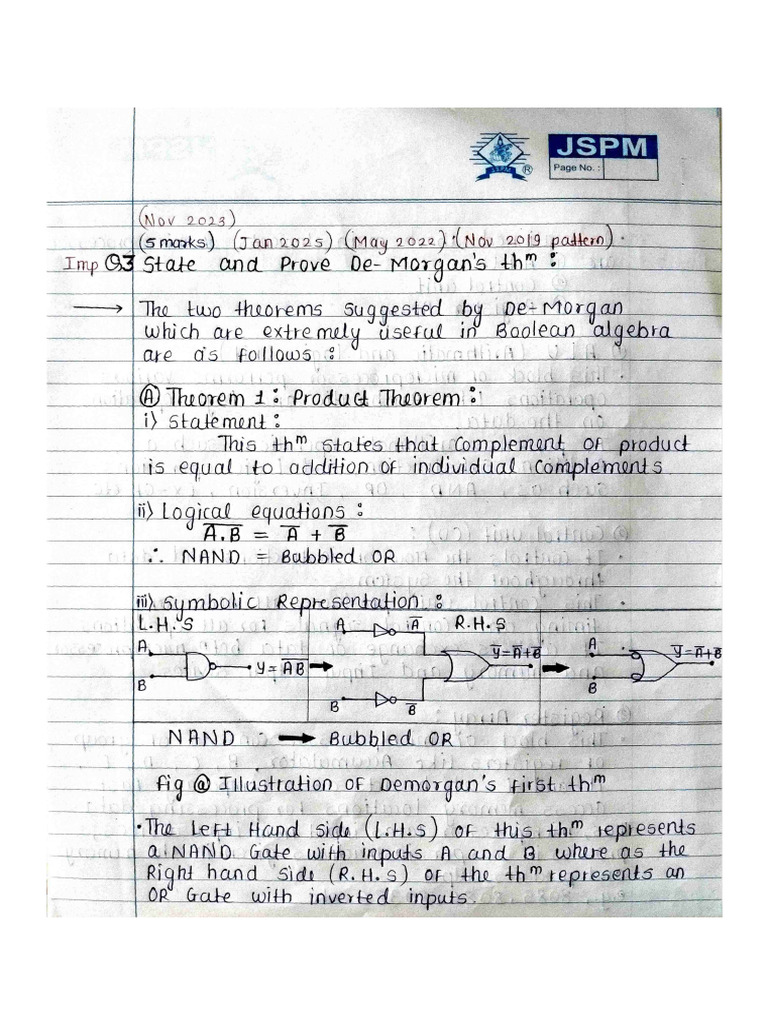 JSPM
JSPM
®
Page No. :
(Nov 2023)
(5 marks) (Jan 2025) (May 2022) (Nov 2019 pattern).
Imp Q3 State and Prove De-Morgan's thm :
→ The two theorems suggested by De-Morgan
which are extremely useful in Boolean algebra
are as follows :
Ⓐ Theorem 1 : Product Theorem :
i) Statement :
This thm states that complement of product
is equal to addition of individual complements
ii) Logical equations :
A̅.̅B̅ = A̅ + B̅
∴ NAND = Bubbled OR
iii) Symbolic Representation :
L.H.S R.H.S
A B Y = A̅B̅
A A̅ B B̅ Y̅ = A̅+B̅
A B Y̅ = A̅+B̅
NAND → Bubbled OR
fig ⓐ Illustration of Demorgan's first thm
• The Left Hand side (L.H.S) of this thm represents
a NAND Gate with inputs A and B where as the
Right hand side (R.H.S) of the thm represents an
OR Gate with inverted inputs.